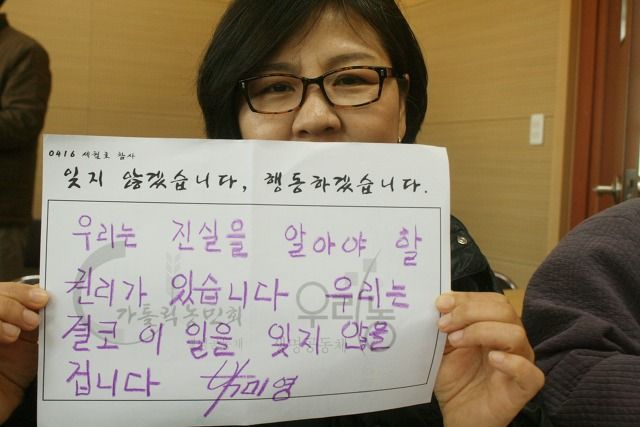 0416 세월호 참사
잊지 않겠습니다, 행동하겠습니다.
우리는 진실을 알아야 할
권리가 있습니다 우리는
가톨릭농민회 우리농
결코 이 일을 잊지 않을
겁니다 박미영